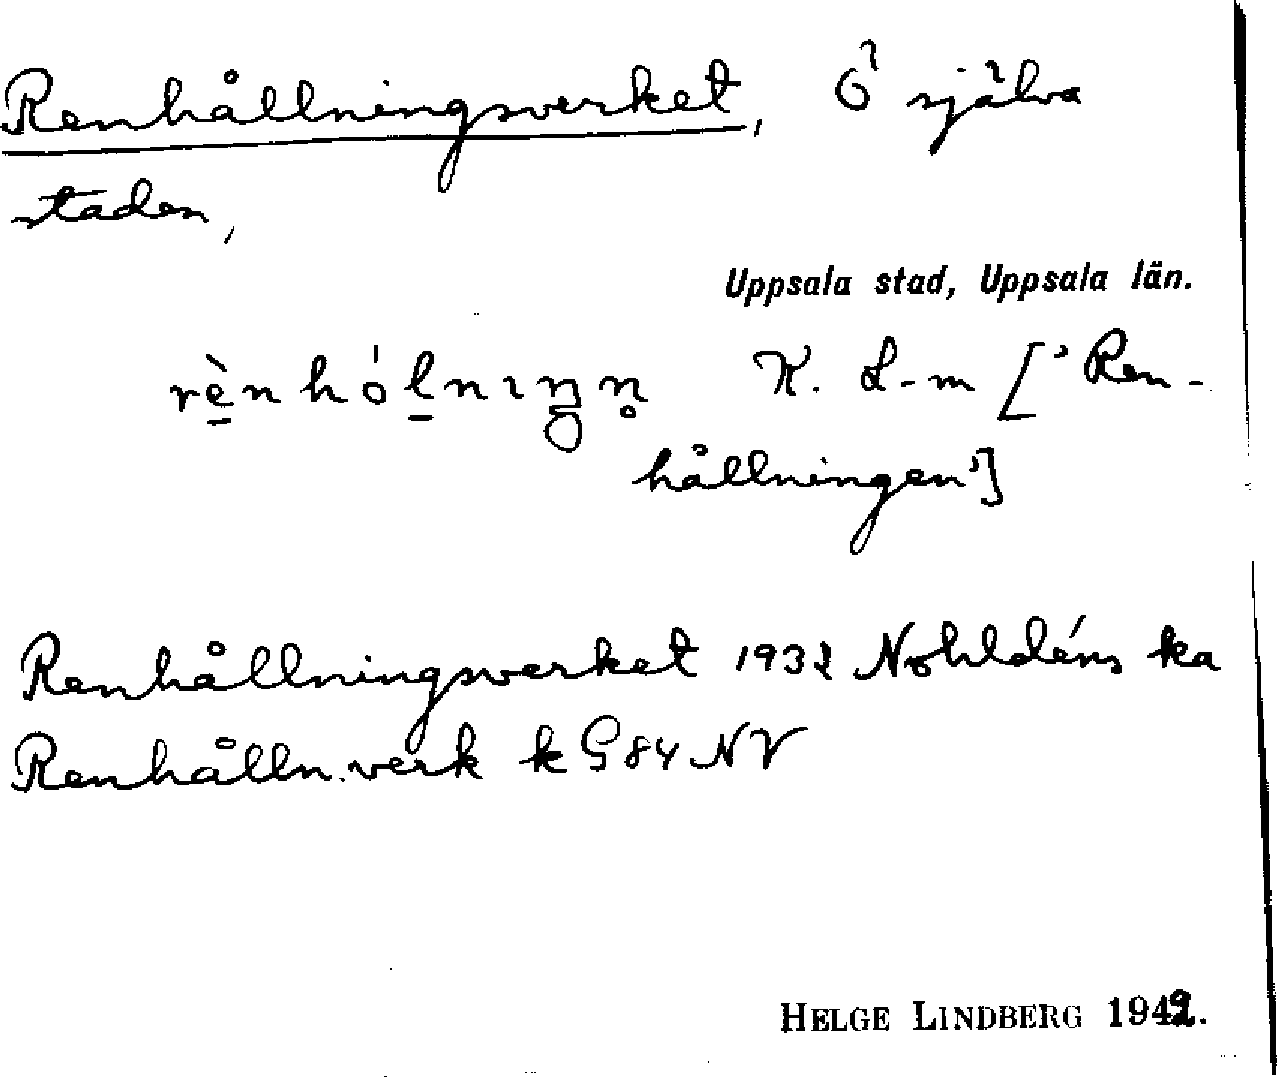 Renhållningsverket, Ö själva
staden,
Uppsala stad, Uppsala län.
K. L-m [’Ren-
hållningen’]
Renhållningsverket 1932 Nohldéns ka
Renhålln.verk k G 84 NV
HELGE LINDBERG 1942.